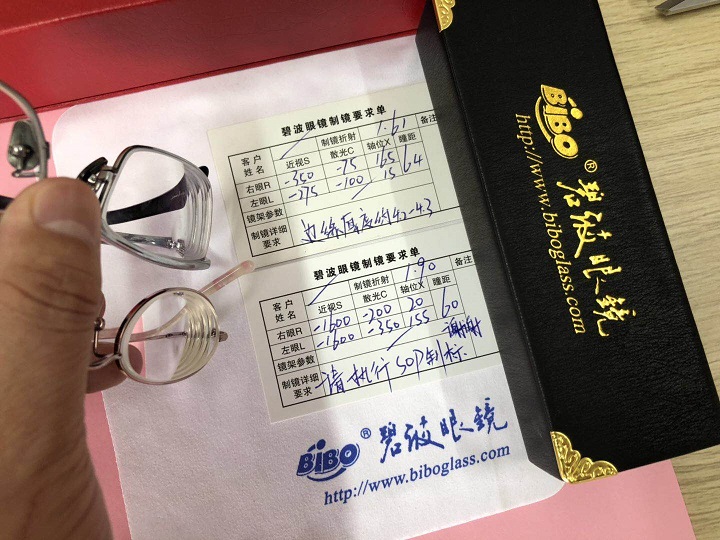 碧波眼镜制镜要求单
客户姓名 制镜折射 1.61 备注
近视S 散光C 轴位X 瞳距
右眼R -350 -75 165 64
左眼L -275 -100 15
镜架参数
制镜详细要求 边缘厚度约
碧波眼镜制镜要求单
客户姓名 制镜折射 1.90 备注
近视S 散光C 轴位X 瞳距
右眼R -1600 -200 20 60
左眼L -1600 -350 155
镜架参数 谢谢
制镜详细要求 请执行SOP制标
BiBO® 碧波眼镜
http://www.biboglass.com
BiBO® 碧波眼镜
http://www.biboglass.com